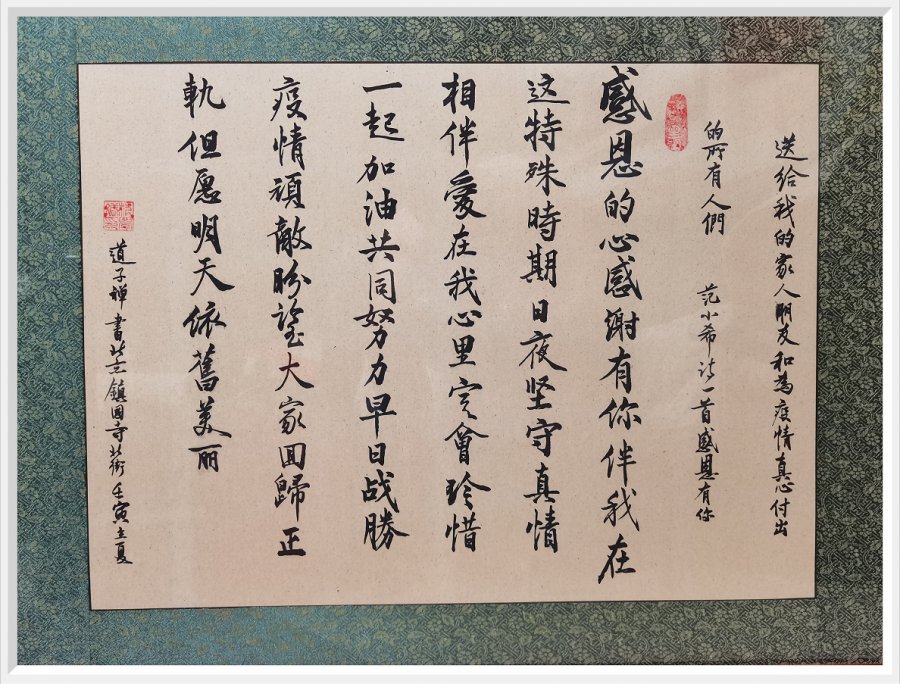 送给我的家人朋友和為疫情真心付出
的所有人們 范小希诗一首感恩有你
感恩的心感谢有你伴我在
这特殊時期日夜坚守真情
相伴爱在我心里定會珍惜
一起加油共同努力早日战勝
疫情頑敵盼望大家回歸正
軌但愿明天依舊美丽
道子禅書 鎮国寺北街壬寅立夏